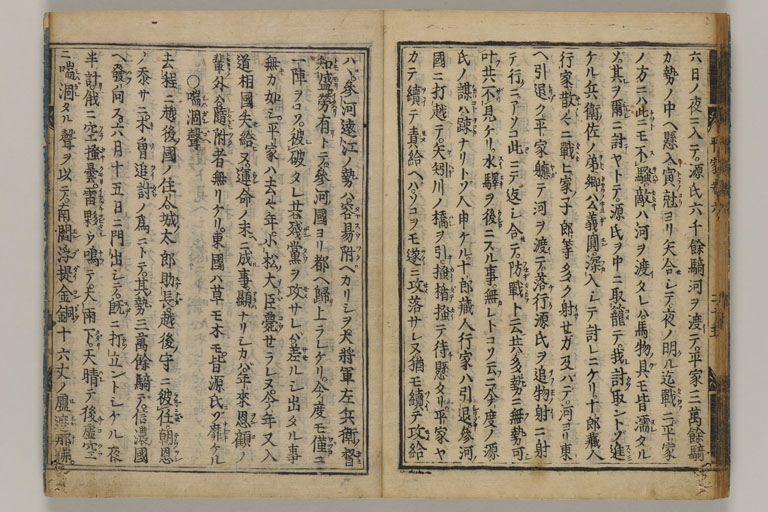 六日ノ夜ニ入テ源氏六千餘騎河ヲ渡テ平家三萬餘騎
カ勢ノ中ヘ懸入寅尅ヨリ矢合シテ夜ノ明ル迄戰ニ平家
ノ方ニハ此ニモ不騒敵ハ河ヲ渡タレハ馬物具モ皆濡タル
ソ其ヲ爾ニ討ヤトテ源氏ヲ中ニ取籠テ我討取ントソ進
ケル兵衛佐ノ弟郷公義圓深入シテ討レニケリ十郎藏人
行家散々ニ戰ヒ家子郎等多ク射セ力及ハテ河ヨリ東
ヘ引退ク平家軈テ河ヲ渡テ落行源氏ヲ追物射ニ射
テ行ニアソコ此ニテ返シ合テ防戰ト云共多勢ニ無勢可
叶共不見ケリ水驛ヲ後ニスル事無レトコソ云ニ今度ノ源
氏ノ謀ハ踈ナリトソ人申ケル十郎藏人行家ハ引退參河
國ニ打越テ矢矧川ノ橋ヲ引掻楯掻テ待懸タリ平家ヤ
カテ續テ責給ヘハソコヲモ遂ニ攻落サレヌ猶モ續テ攻給
ハヽ參河遠江ノ勢ハ容易附ヘカリシヲ大將軍左兵衛督
知盛勞有トテ參河國ヨリ都ヘ歸上ラレケリ今度モ僅ニ
一陣ヲコソ被破タレ共殘黨ヲ攻サレハ差ルシ出タル事
無カ如シ平家ハ去々年小松大臣薨セラレヌ今年又入
道相國失給ヌ運命ノ末ニ成事顯ナリシカハ年來恩顧ノ
輩外ハ隨附者無リケリ東國ハ草モ木モ皆源氏ニソ靡ケル
○喘涸聲
去程ニ越後國ノ住人城太郎助長越後守ニ彼任朝恩
ノ忝サニ木曽追討ノ爲ニトテ其勢三萬餘騎テ信濃國
ヘ發向ス六月十五日ニ門出シテ既ニ打立ントシケル夜
半計俄ニ空掻曇雷夥ウ鳴テ大雨下天晴テ後虚空
ニ喘涸タル聲ヲ以テ南閻浮提金銅十六丈ノ盧遮那佛